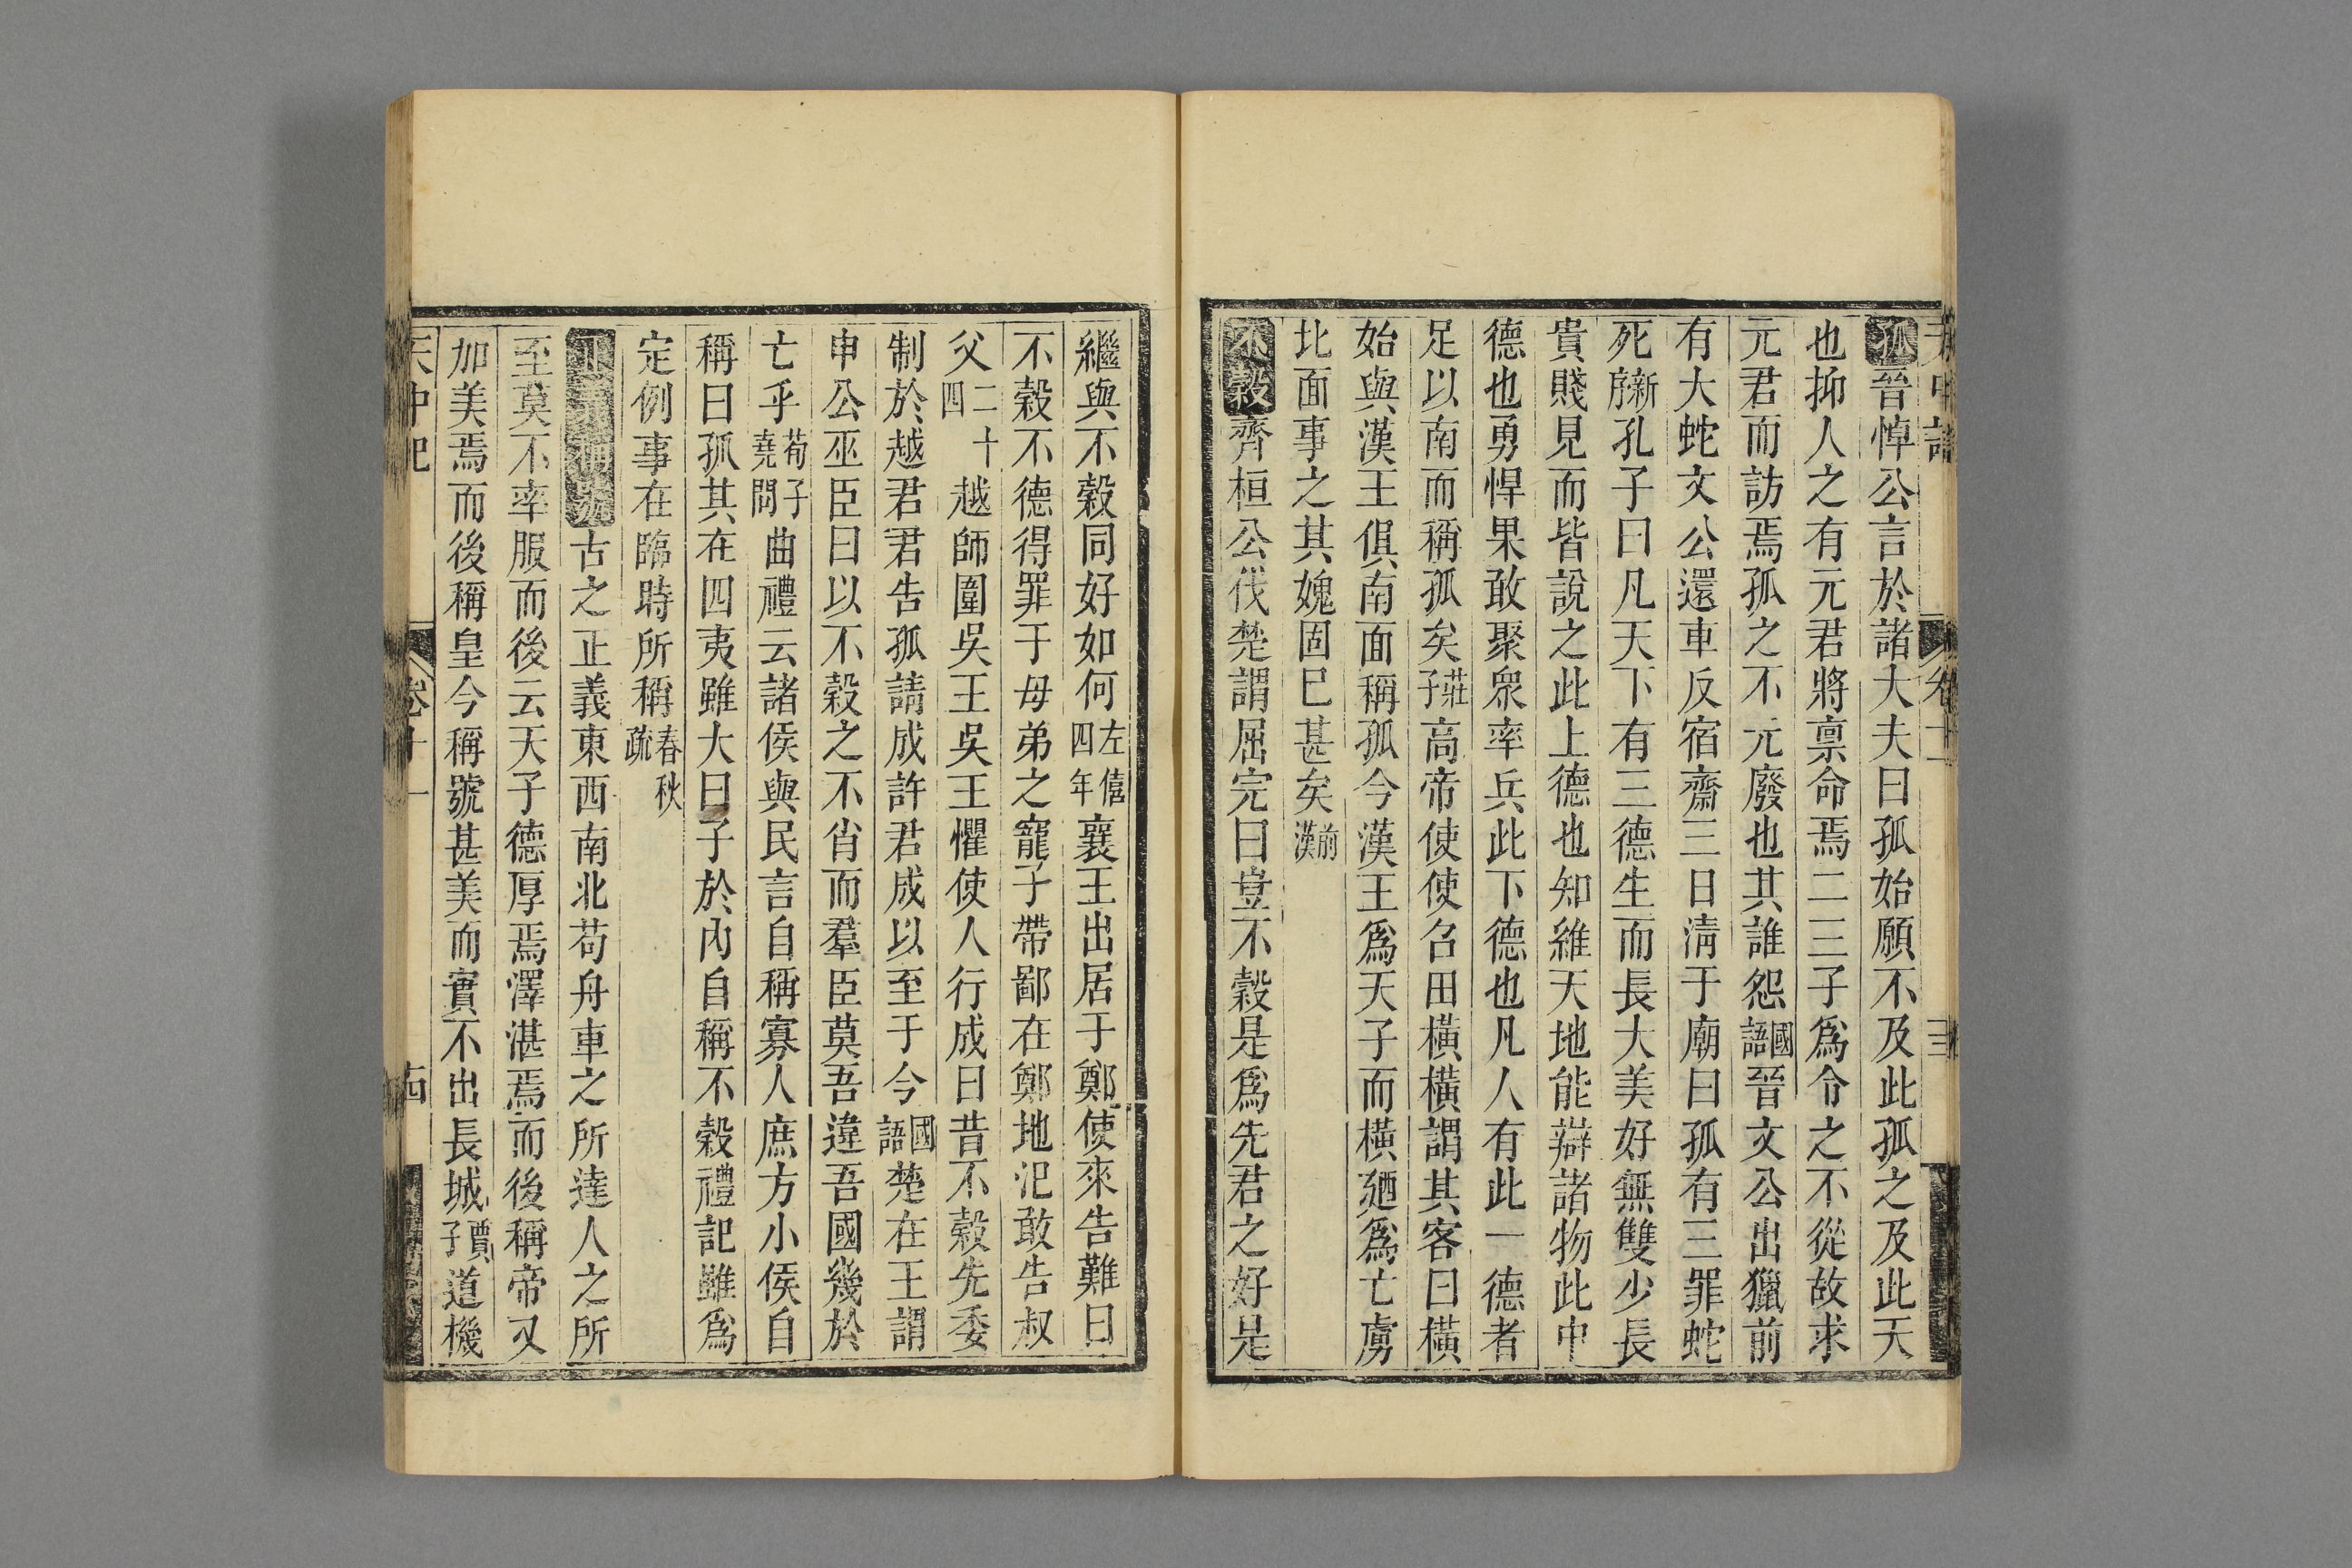 孤晉悼公言於諸大夫曰孤始願不及此孤之及此天
也抑人之有元君將稟命焉二三子爲令之不從故求
元君而訪焉孤之不元廢也其誰怨國語晉文公出獵前
有大蛇文公還車反宿齋三日淸于廟曰孤有三罪蛇
死新序孔子曰凡天下有三德生而長大美好無雙少長
貴賤見而皆說之此上德也知維天地能辯諸物此中
德也勇悍果敢聚衆率兵此下德也凡人有此一德者
足以南而稱孤矣莊子高帝使使召田橫橫謂其客曰橫
始與漢王俱南面稱孤今漢王爲天子而橫廼爲亡虜
北面事之其媿固巳甚矣前漢
不穀齊桓公伐楚謂屈完曰豈不穀是爲先君之好是
繼與不穀同好如何左僖四年襄王出居于鄭使來告難曰
不穀不德得罪于母弟之寵子帶鄙在鄭地汜敢告叔
父二十四越師圍吳王吳王懼使人行成曰昔不穀先委
制於越君君告孤請成許君成以至于今國語楚在王謂
申公巫臣曰以不穀之不肖而羣臣莫吾違吾國幾於
亡乎荀子堯問曲禮云諸侯與民言自稱寡人庶方小侯自
稱曰孤其在四夷雖大曰子於內自稱不穀禮記雖爲
定例事在臨時所稱春秋疏
古之正義東西南北苟舟車之所達人之所
至莫不率服而後云天子德厚焉澤湛焉而後稱帝又
加美焉而後稱皇今稱號甚美而實不出長城賈子道機
天中記
卷十一
十四